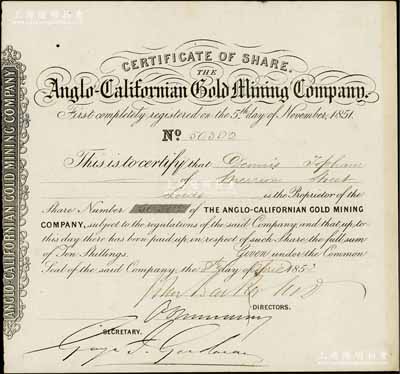 CERTIFICATE OF SHARE.
THE
Anglo-Californian Gold Mining Company.
First completely registered on the 5th day of November, 1851.
No 50302
This is to certify that Dennis Topham
of Street
Leeds is the Proprietor of the
Share Number of THE ANGLO-CALIFORNIAN GOLD MINING
COMPANY, subject to the regulations of the said Company, and that up to
this day there has been paid up, in respect of such Share, the full sum
of Ten Shillings. Given under the Common
Seal of the said Company, the day of 185
John
DIRECTORS.
SECRETARY.
ANGLO-CALIFORNIAN GOLD MINING COMPANY